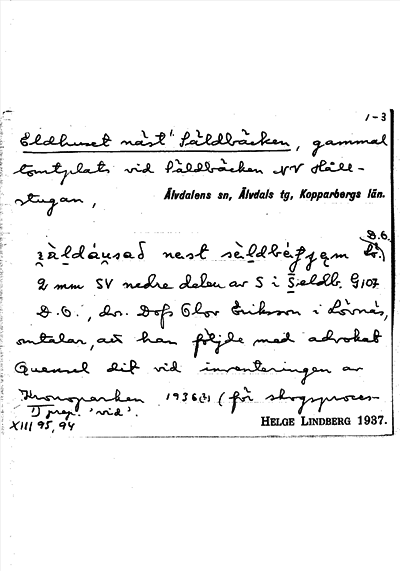 1-3
Eldhuset näst Säldbäcken, gammal
tomtplats vid Säldbäcken NV Håll-
stugan,
Älvdalens sn, Älvdals tg, Kopparbergs län.
nest
D.O.
2 mm SV nedre delen av S i Säeldb. G107
D.O., dvs. Dofs Olov Eriksson i Lövnäs,
omtalar, att han följde med advokat
Quensel dit vid inventeringen av
Kronoparken 1936(?) (för skogsproces-
I prep. 'vid'.
XIII 95, 94
HELGE LINDBERG 1937.